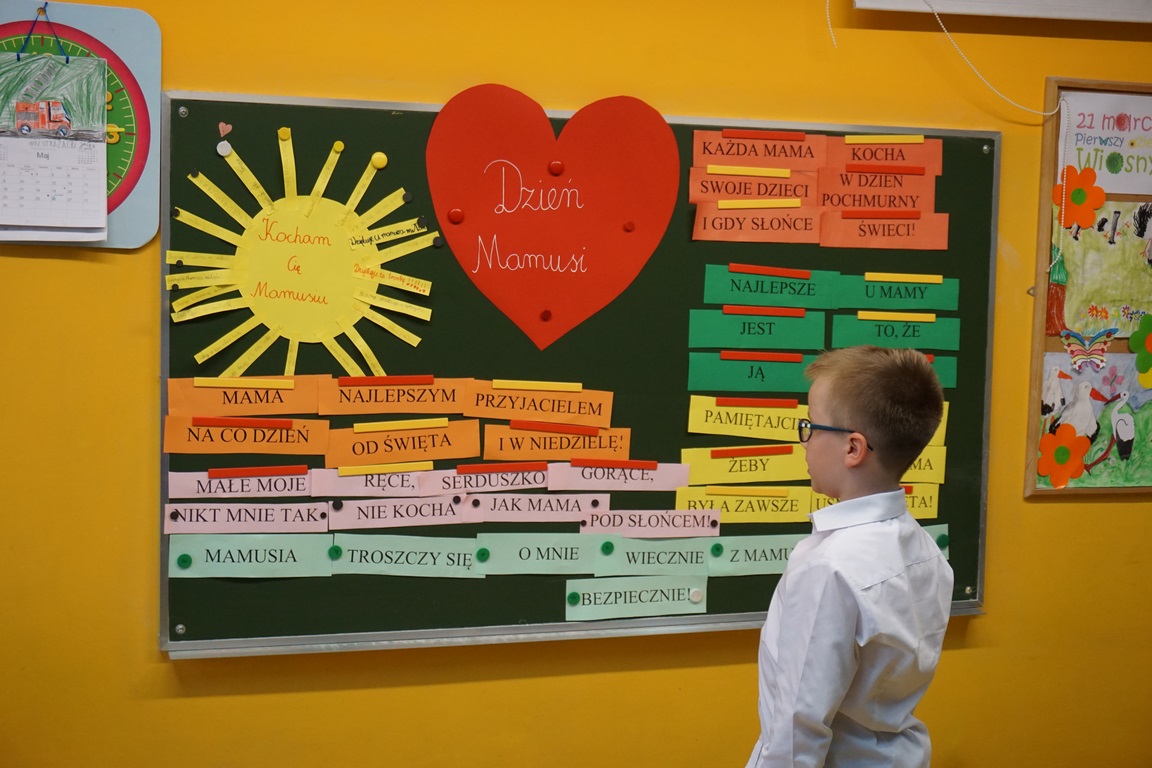 Maj
Kocham
Cię
Mamusiu
Dzień
Mamusi
KAŻDA MAMA KOCHA
SWOJE DZIECI W DZIEŃ POCHMURNY
I GDY SŁOŃCE ŚWIECI!
NAJLEPSZE U MAMY
JEST TO, ŻE
JĄ
PAMIĘTAJCIE
ŻEBY
BYŁA ZAWSZE
MAMA NAJLEPSZYM PRZYJACIELEM
NA CO DZIEŃ OD ŚWIĘTA I W NIEDZIELĘ!
MAŁE MOJE RĘCE, SERDUSZKO GORĄCE,
NIKT MNIE TAK NIE KOCHA JAK MAMA POD SŁOŃCEM!
MAMUSIA TROSZCZY SIĘ O MNIE WIECZNIE Z MAMU
BEZPIECZNIE!
21 marc
Pierwszy
Wiosny